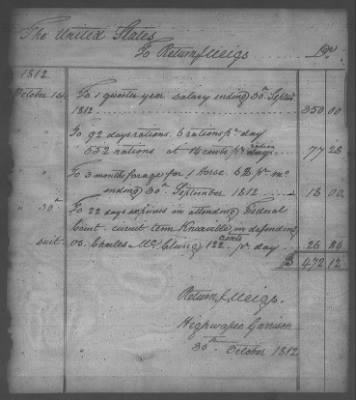 The United States
To Return J. Meigs Dr.
1812
October 1st To 1 quarter year salary ending 30th Septr
1812 350 00
To 92 days rations. 6 rations pr day
552 rations at 14 cents pr ration 77 28
" To 3 months forage for 1 horse 6$ pr mo
ending 30th September 1812 18 00
" 30th To 22 days expences in attending Federal
Court circuit term Knoxville in defending
suit. vs. Charles McClung 122 cents pr day 26 84
$ 472 12
Return J. Meigs.
Highwassee Garrison
30th October 1812